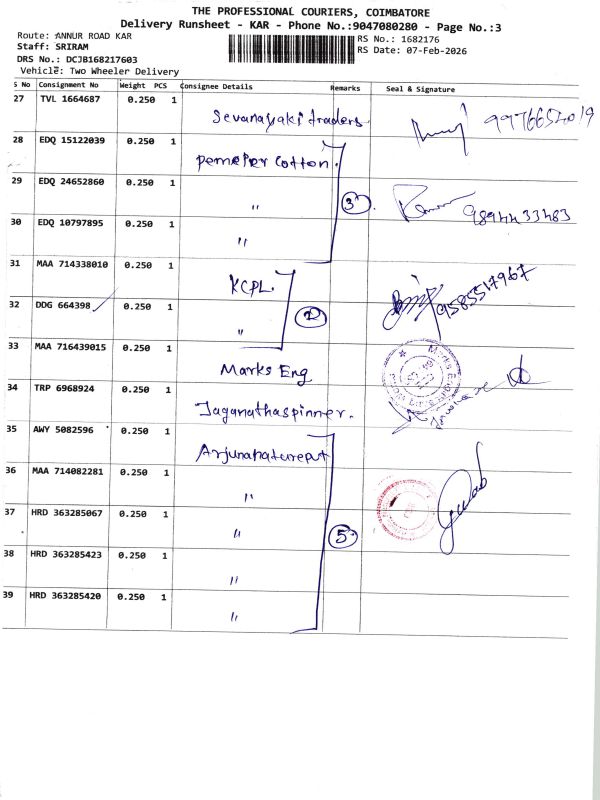 THE PROFESSIONAL COURIERS, COIMBATORE
Delivery Runsheet - KAR - Phone No.:9047080280 - Page No.:3
Route: ANNUR ROAD KAR
RS No.: 1682176
Staff: SRIRAM
RS Date: 07-Feb-2026
DRS No.: DCJB168217603
Vehicle: Two Wheeler Delivery
S No Consignment No Weight PCS Consignee Details Remarks Seal & Signature
27 TVL 1664687 0.250 1 Sevanayaki traders 9976657019
28 EDQ 15122039 0.250 1 Pemofer Cotton.
29 EDQ 24652860 0.250 1 " 3 9894433483
30 EDQ 10797895 0.250 1 "
31 MAA 714338010 0.250 1 KCPL. 9585517967
32 DDG 664398 0.250 1 " 2
33 MAA 716439015 0.250 1 Marks Eng
34 TRP 6968924 0.250 1 Jaganathaspinner.
35 AWY 5082596 0.250 1
36 MAA 714082281 0.250 1 "
37 HRD 363285067 0.250 1 " 5
38 HRD 363285423 0.250 1 "
39 HRD 363285420 0.250 1 "